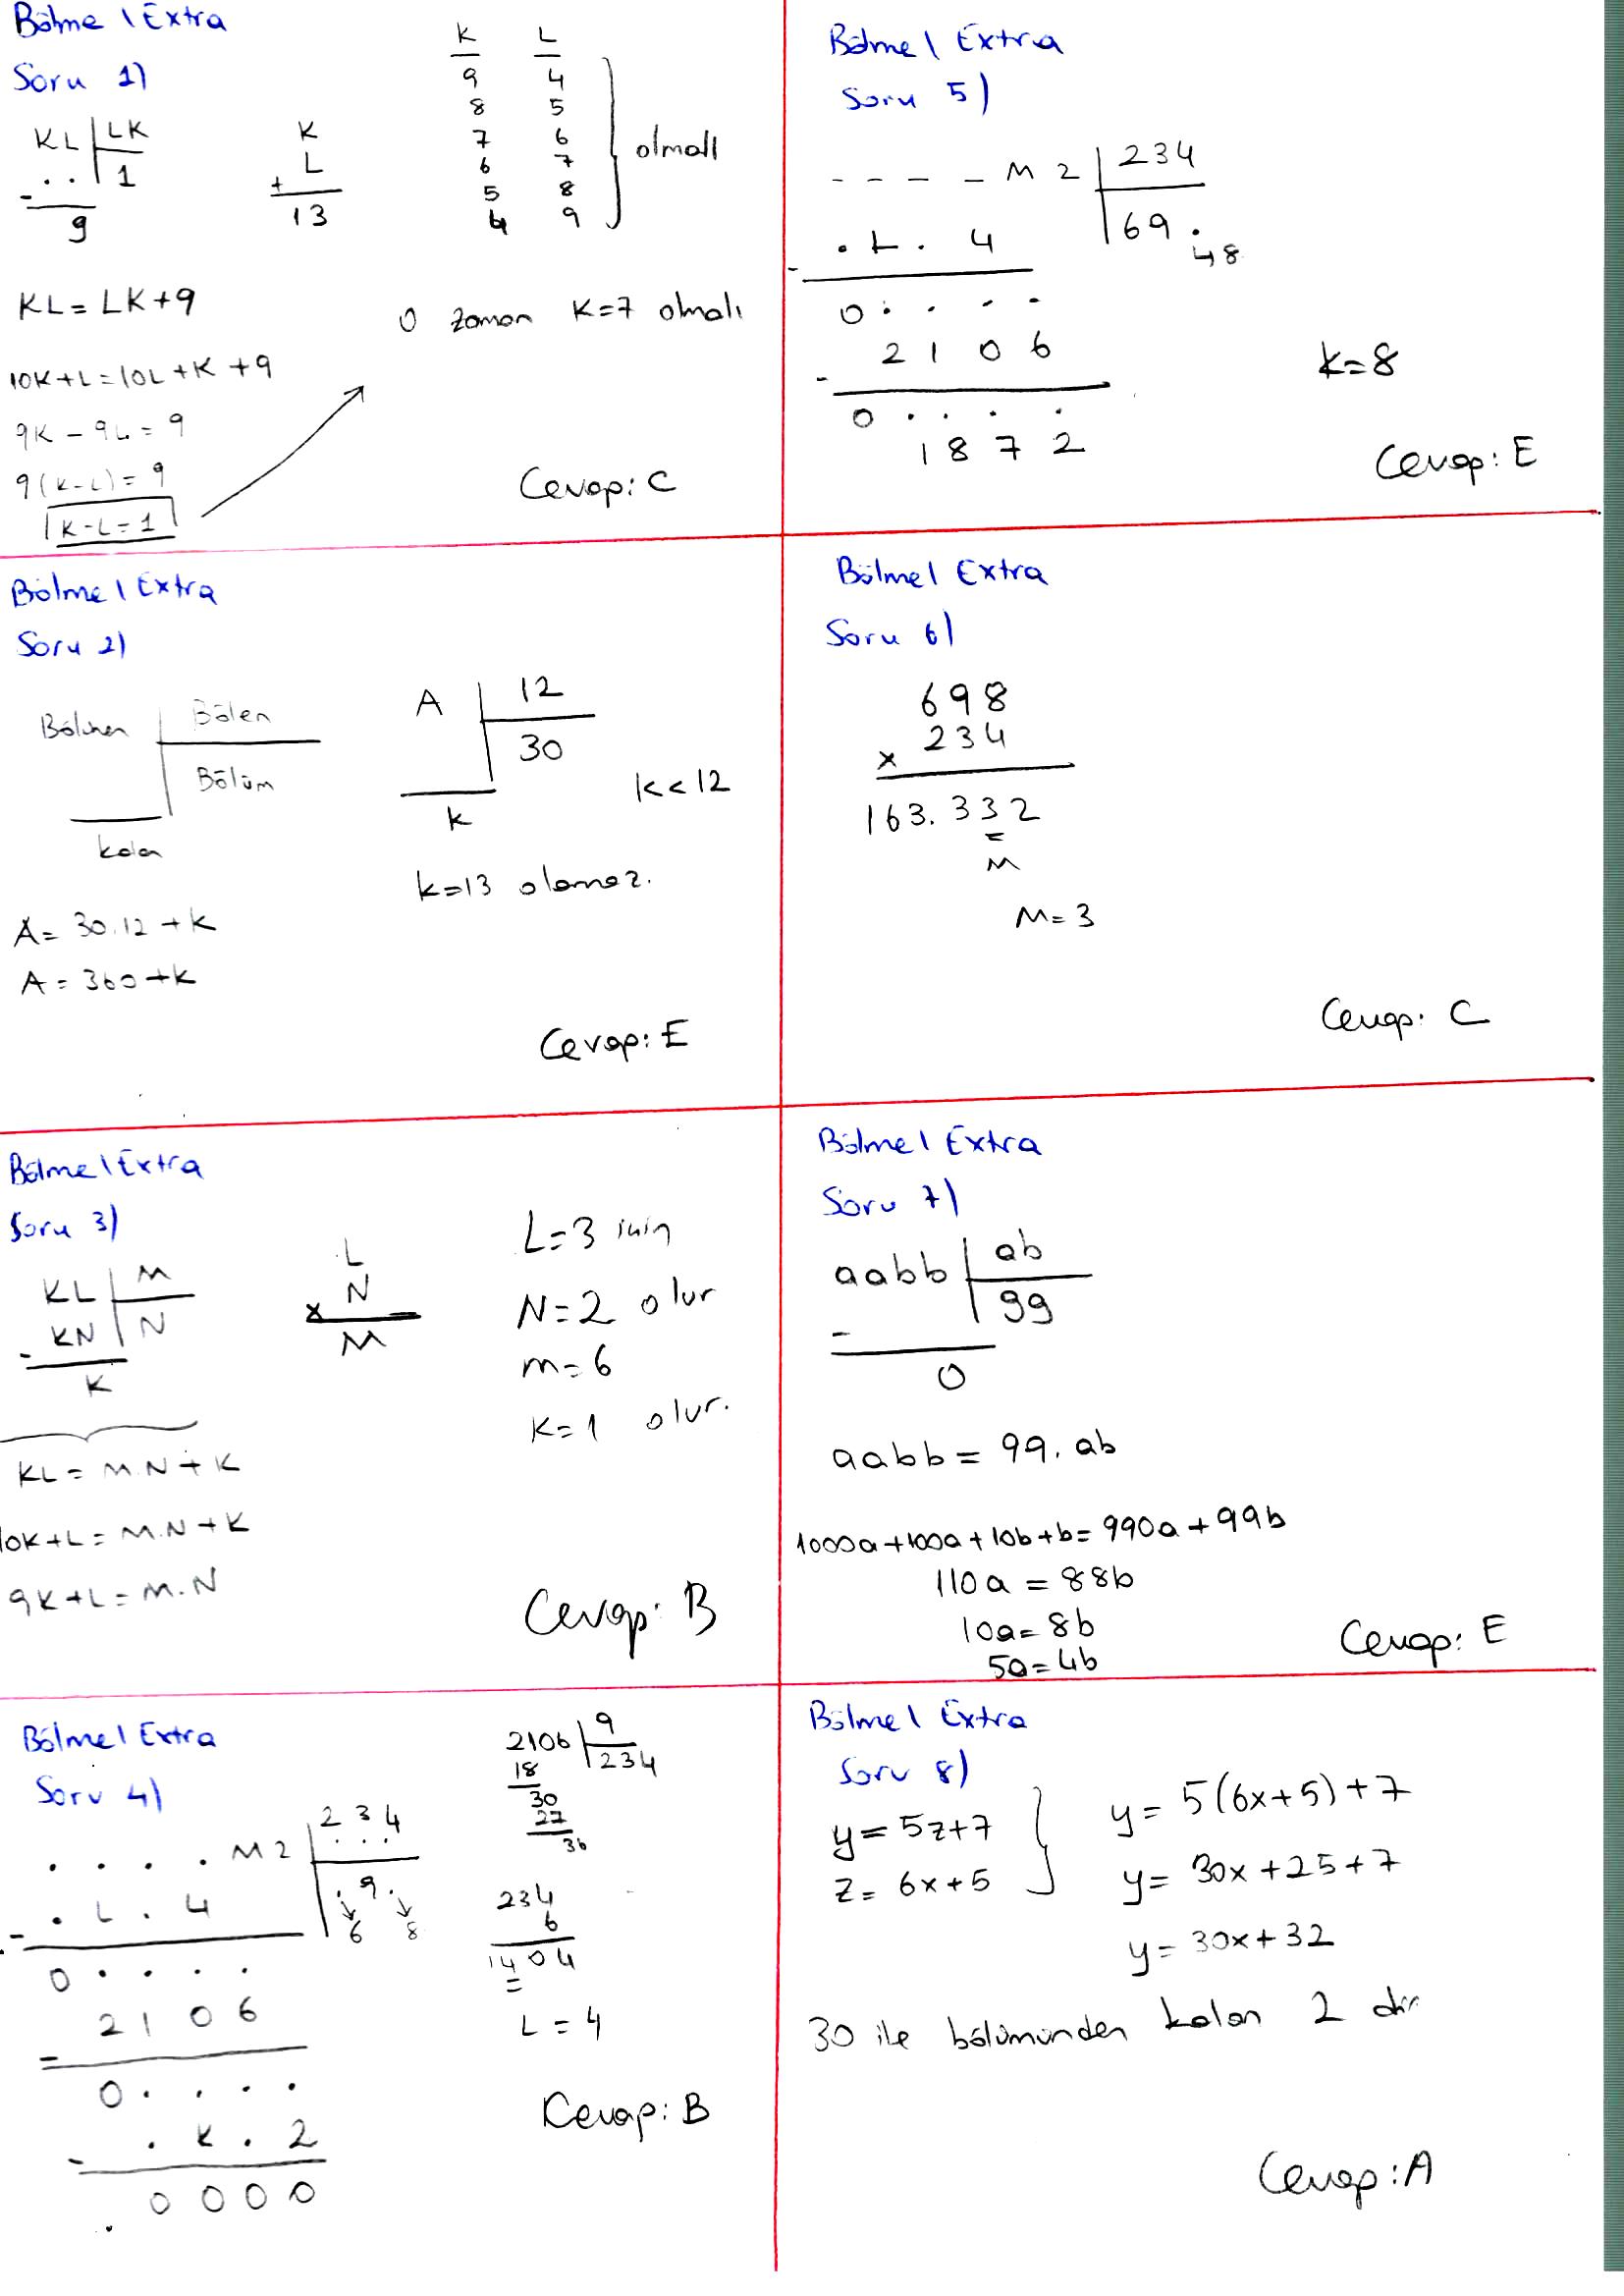 Bölme 1 Extra
Soru 1)
KL | LK
- . . | 1
9
K
L
+
13
K L
9 4
8 5
7 6
6 7
5 8
4 9
olmalı
KL = LK+9
10K+L=10L+K+9
9K-9L=9
9(K-L)=9
K-L=1
O zaman K=7 olmalı
Cevap: C
Bölme 1 Extra
Soru 2)
Bölünen | Bölen
Bölüm
kalan
A | 12
30
k
k<12
k=13 olamaz.
A= 30.12+k
A= 360+k
Cevap: E
Bölme 1 Extra
Soru 3)
KL | M
- KN | N
K
L
x N
M
L=3 için
N=2 olur
m=6
K=1 olur.
KL= M.N+K
10K+L= M.N+K
9K+L=M.N
Cevap: B
Bölme 1 Extra
Soru 4)
. . . . M 2 | 2 3 4
. . .
- . L . 4 | . 9 .
6 8
0 . . . .
2 1 0 6
0 . . . .
- . K . 2
0 0 0 0
2106 | 9
18 | 234
30
27
36
234
6
1404
L=4
Cevap: B
Bölme 1 Extra
Soru 5)
- - - - M 2 | 234
- . L . 4 | 69 .
48
0 . . . .
- 2 1 0 6
0 . . . .
1 8 7 2
k=8
Cevap: E
Bölme 1 Extra
Soru 6)
698
x 234
163.332
M
M=3
Cevap: C
Bölme 1 Extra
Soru 7)
aabb | ab
- | 99
0
aabb = 99.ab
1000a+100a+10b+b=990a+99b
110a = 88b
10a=8b
5a=4b
Cevap: E
Bölme 1 Extra
Soru 8)
y=5z+7
z= 6x+5
y= 5(6x+5)+7
y= 30x+25+7
y= 30x+32
30 ile bölümünden kalan 2 dir
Cevap: A